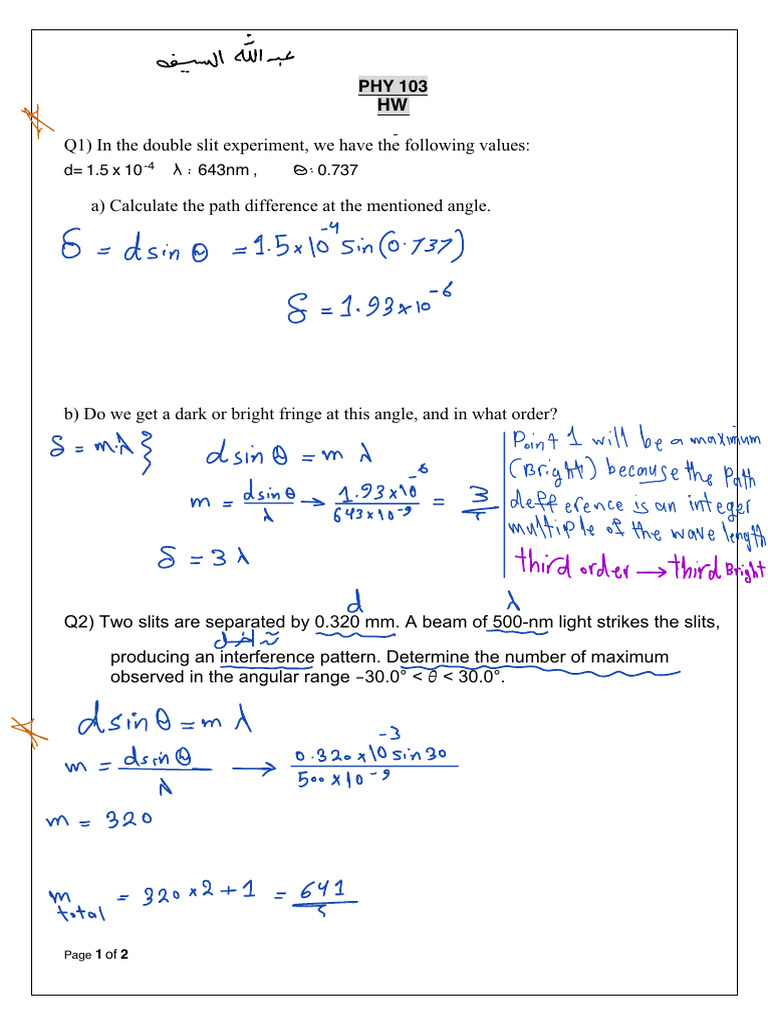 عبدالله السيف
PHY 103
HW
Q1) In the double slit experiment, we have the following values:
d= 1.5 x 10⁻⁴ λ : 643nm , Θ: 0.737
a) Calculate the path difference at the mentioned angle.
δ = d sin θ = 1.5×10⁻⁴ sin(0.737)
δ = 1.93×10⁻⁶
b) Do we get a dark or bright fringe at this angle, and in what order?
δ = m.λ }
d sin θ = m λ
m = d sin θ / λ → 1.93×10⁻⁶ / 643×10⁻⁹ = 3
δ = 3 λ
Point 1 will be a maximum
(Bright) because the Path
defference is an integer
multiple of the wave length
third order → third Bright
d λ
Q2) Two slits are separated by 0.320 mm. A beam of 500-nm light strikes the slits,
تداخل
producing an interference pattern. Determine the number of maximum
observed in the angular range −30.0° < θ < 30.0°.
d sin θ = m λ
m = d sin θ / λ → 0.320×10⁻³ sin 30 / 500×10⁻⁹
m = 320
m total = 320×2+1 = 641
Page 1 of 2